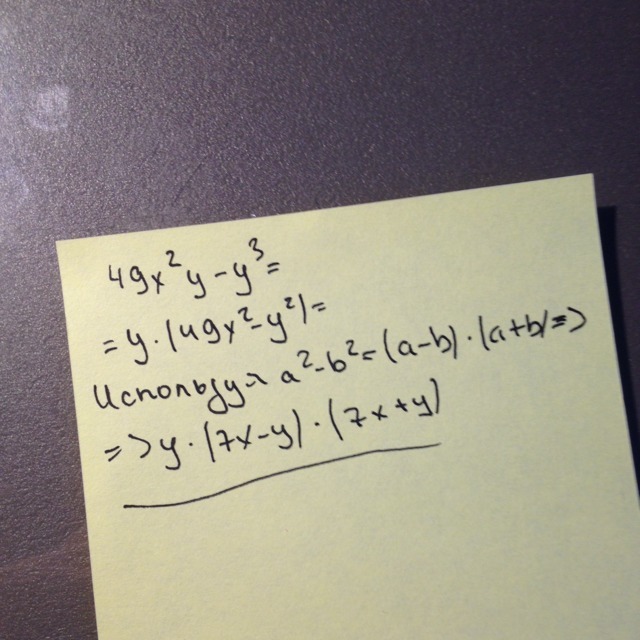 49x²y-y³=
=y·(49x²-y²)=
Используя a²-b²=(a-b)·(a+b)=>
=>y·(7x-y)·(7x+y)